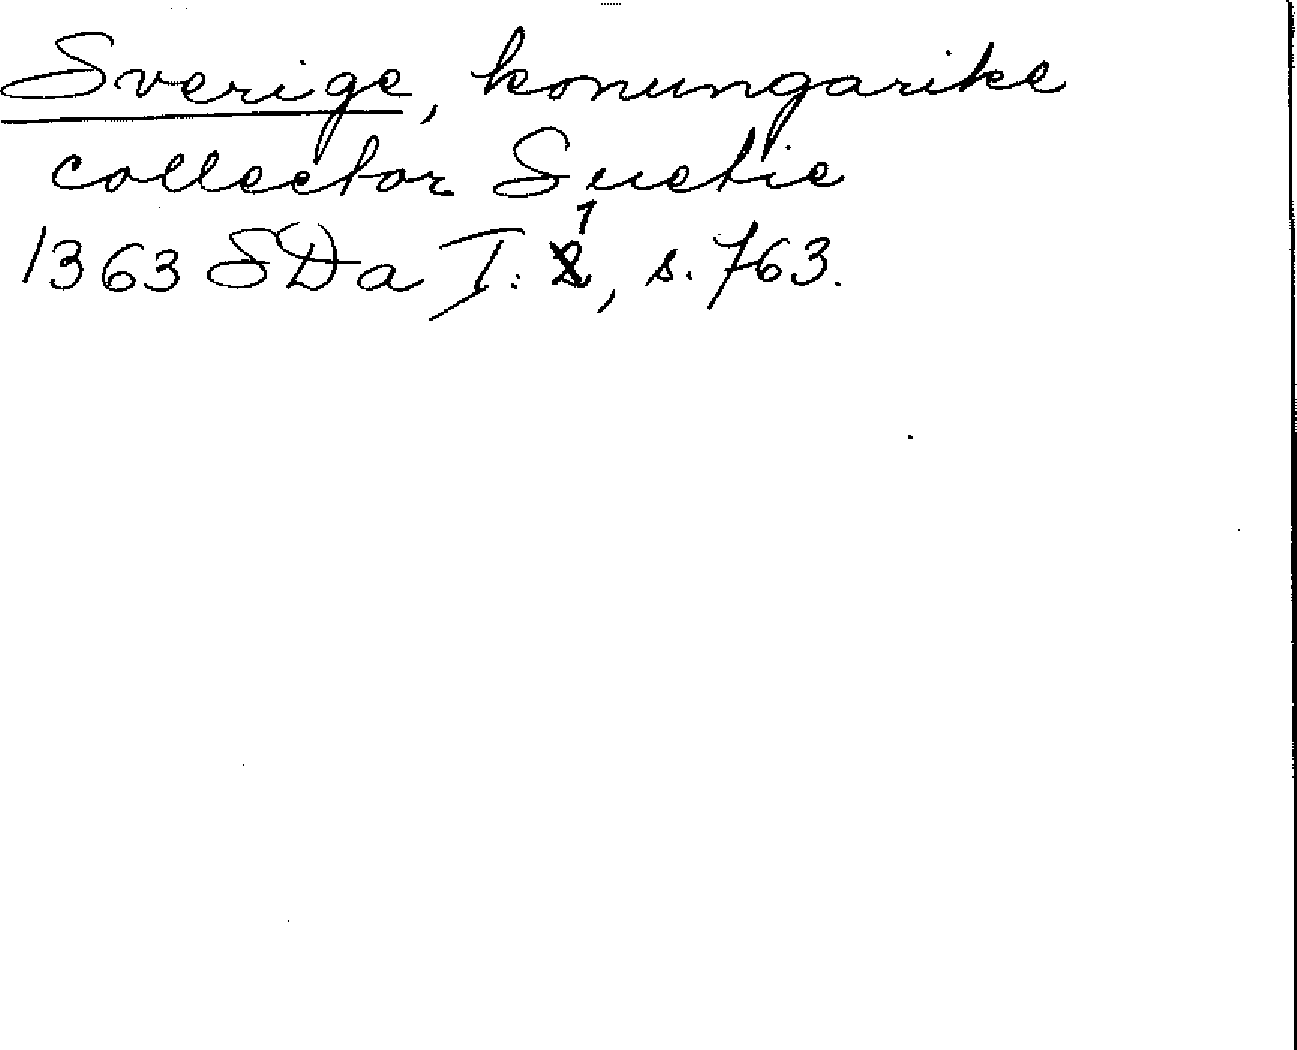 Sverige, konungarike
collector Suetie
1363 SDa I: 1, s. 763.